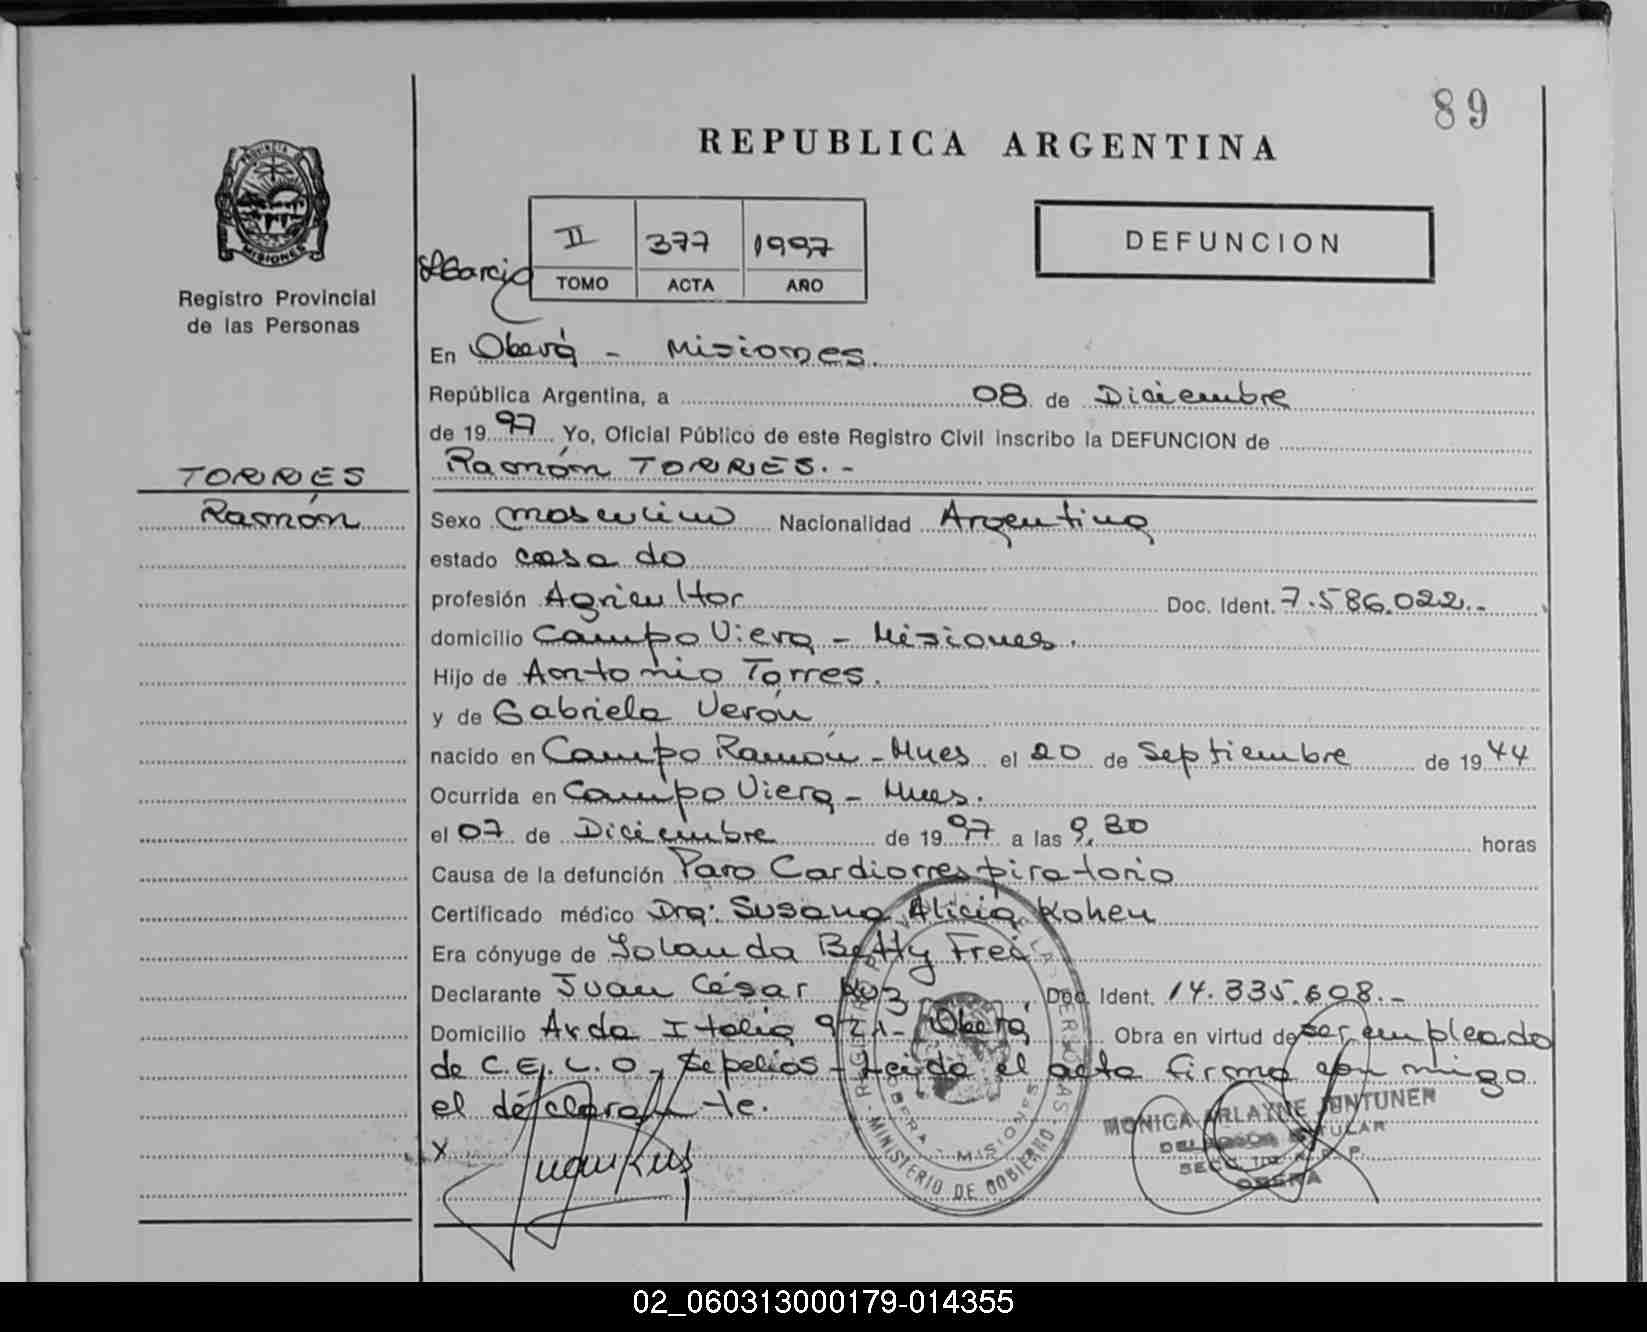 89
REPUBLICA ARGENTINA
PROVINCIA DE
MISIONES
Registro Provincial
de las Personas
II 377 1997
TOMO ACTA AÑO
DEFUNCION
En Oberá - Misiones.
República Argentina, a 08 de Diciembre
de 1997 Yo, Oficial Público de este Registro Civil inscribo la DEFUNCION de
TORRES
Ramón TORRES.-
Ramón
Sexo masculino Nacionalidad Argentina
estado casado
profesión Agricultor Doc. Ident. 7.586.022.-
domicilio Campo Viera - Misiones.
Hijo de Antonio Torres.
y de Gabriela Verón
nacido en Campo Ramón - Mnes el 20 de Septiembre de 1944
Ocurrida en Campo Viera - Mnes.
el 07 de Diciembre de 1997 a las 9,30 horas
Causa de la defunción Paro Cardiorrespiratorio
Certificado médico Dra: Susana Alicia Kohen
Era cónyuge de Iolanda Betty Frei
Declarante Juan César Doc. Ident. 14.335.608.-
Domicilio Avda Italia 921- Oberá Obra en virtud de ser empleado
de C.E.L.O. Sepelios - Leída el acta firma con migo
el declarante.
x
MONICA ARLAYNE JUNTUNEN
TITULAR
OBERA
OBERA - MISIONES
MINISTERIO DE GOBIERNO
02_060313000179-014355